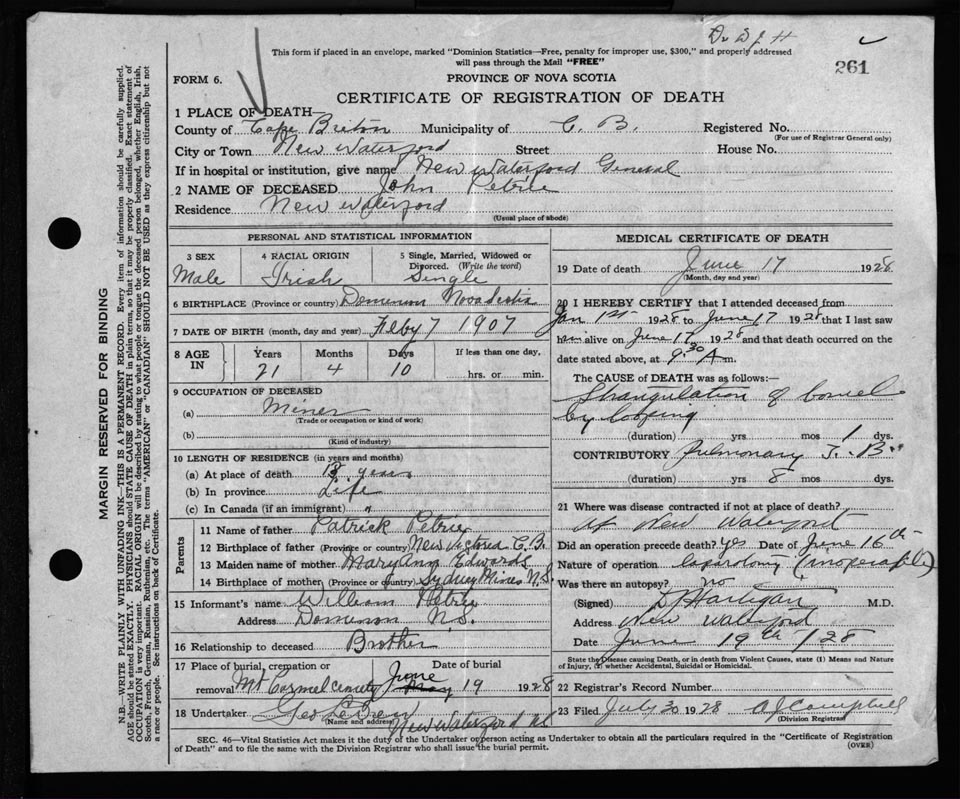 Dr D J H
261
This form if placed in an envelope, marked "Dominion Statistics—Free, penalty for improper use, $300," and properly addressed
will pass through the Mail "FREE"
FORM 6.
PROVINCE OF NOVA SCOTIA
CERTIFICATE OF REGISTRATION OF DEATH
1 PLACE OF DEATH
County of Cape Breton Municipality of C. B. Registered No.
(For use of Registrar General only)
City or Town New Waterford Street House No.
If in hospital or institution, give name New Waterford General
2 NAME OF DECEASED John Petrie
Residence New Waterford
(Usual place of abode)
PERSONAL AND STATISTICAL INFORMATION
3 SEX 4 RACIAL ORIGIN 5 Single, Married, Widowed or
Divorced. (Write the word)
Male Irish Single
6 BIRTHPLACE (Province or country) Dominion Nova Scotia
7 DATE OF BIRTH (month, day and year) Feby 7 1907
8 AGE IN Years Months Days If less than one day,
21 4 10 hrs. or min.
9 OCCUPATION OF DECEASED
(a) Miner
(Trade or occupation or kind of work)
(b)
(Kind of industry)
10 LENGTH OF RESIDENCE (in years and months)
(a) At place of death years
(b) In province Life
(c) In Canada (if an immigrant) "
Parents
11 Name of father Patrick Petrie
12 Birthplace of father (Province or country) New Victoria C. B.
13 Maiden name of mother Mary Ann Edwards
14 Birthplace of mother (Province or country) Sydney Mines N.S.
15 Informant's name William Petrie
Address Dominion N.S.
16 Relationship to deceased Brother
17 Place of burial, cremation or Date of burial
removal Mt Carmel cemetery June May 19 1928
18 Undertaker Geo LeBrew
(Name and address) New Waterford N.S.
MEDICAL CERTIFICATE OF DEATH
19 Date of death June 17 1928
(Month, day and year)
20 I HEREBY CERTIFY that I attended deceased from
Jan 1st 1928 to June 17 1928 that I last saw
him alive on June 17 1928 and that death occurred on the
date stated above, at 9.30 A m.
The CAUSE of DEATH was as follows:—
Strangulation of bowel
by looping
(duration) yrs mos 1 dys.
CONTRIBUTORY Pulmonary T. B.
(duration) yrs 8 mos dys.
21 Where was disease contracted if not at place of death?
at New Waterford
Did an operation precede death? yes Date of June 16th
Nature of operation laparotomy (inoperable)
Was there an autopsy? no
(Signed) D J Hartigan M.D.
Address New Waterford
Date June 19th / 28
State the Disease causing Death, or in death from Violent Causes, state (1) Means and Nature
of Injury, (2) whether Accidental, Suicidal or Homicidal.
22 Registrar's Record Number
23 Filed July 30 1928 A J Campbell
(Division Registrar)
SEC. 46—Vital Statistics Act makes it the duty of the Undertaker or person acting as Undertaker to obtain all the particulars required in the "Certificate of Registration
of Death" and to file the same with the Division Registrar who shall issue the burial permit.
(OVER)
MARGIN RESERVED FOR BINDING
N.B.—WRITE PLAINLY WITH UNFADING INK—THIS IS A PERMANENT RECORD. Every item of information should be carefully supplied.
AGE should be stated EXACTLY. PHYSICIANS should STATE CAUSE OF DEATH in plain terms, so that it may be properly classified. Exact statement of
OCCUPATION is very important. RACIAL ORIGIN will be described by stating to what people or tongue the deceased person belonged, whether English, Irish,
Scotch, French, German, Russian, Ruthenian, etc. The terms "AMERICAN" or "CANADIAN" SHOULD NOT BE USED as they express citizenship but not
a race or people. See instructions on back of Certificate.